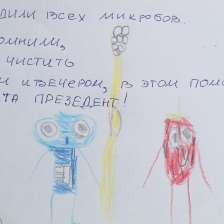 вили всех микробов.
омнили,
чистить
м и вечером, в этом помо
та президент!